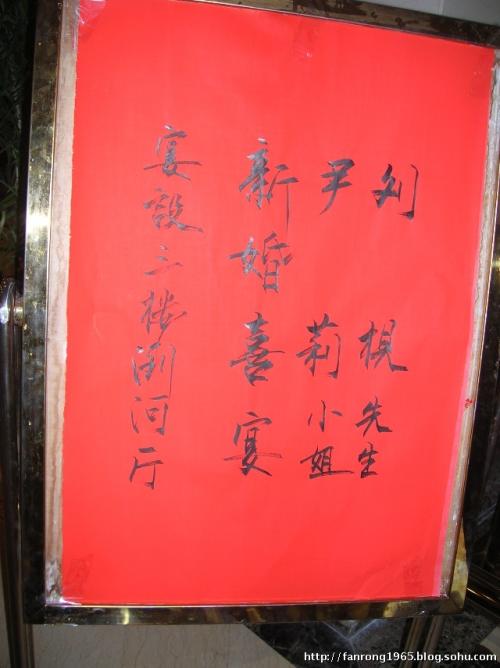 刘 枫先生
尹 莉小姐
新婚喜宴
宴设三楼浏河厅
http://fanrong1965.blog.sohu.com